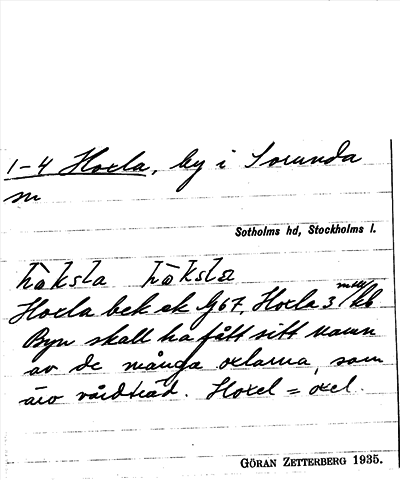 1-4 Hoxla, by i Sorunda
sn
Sotholms hd, Stockholms l.
hòksla hòkslɑ
Hoxla bek ek G67, Hoxla 3 mtl/kb
Byn skall ha fått sitt namn
av de många oxlarna, som
äro vårdträd. Hoxel = oxel.
GÖRAN ZETTERBERG 1935.